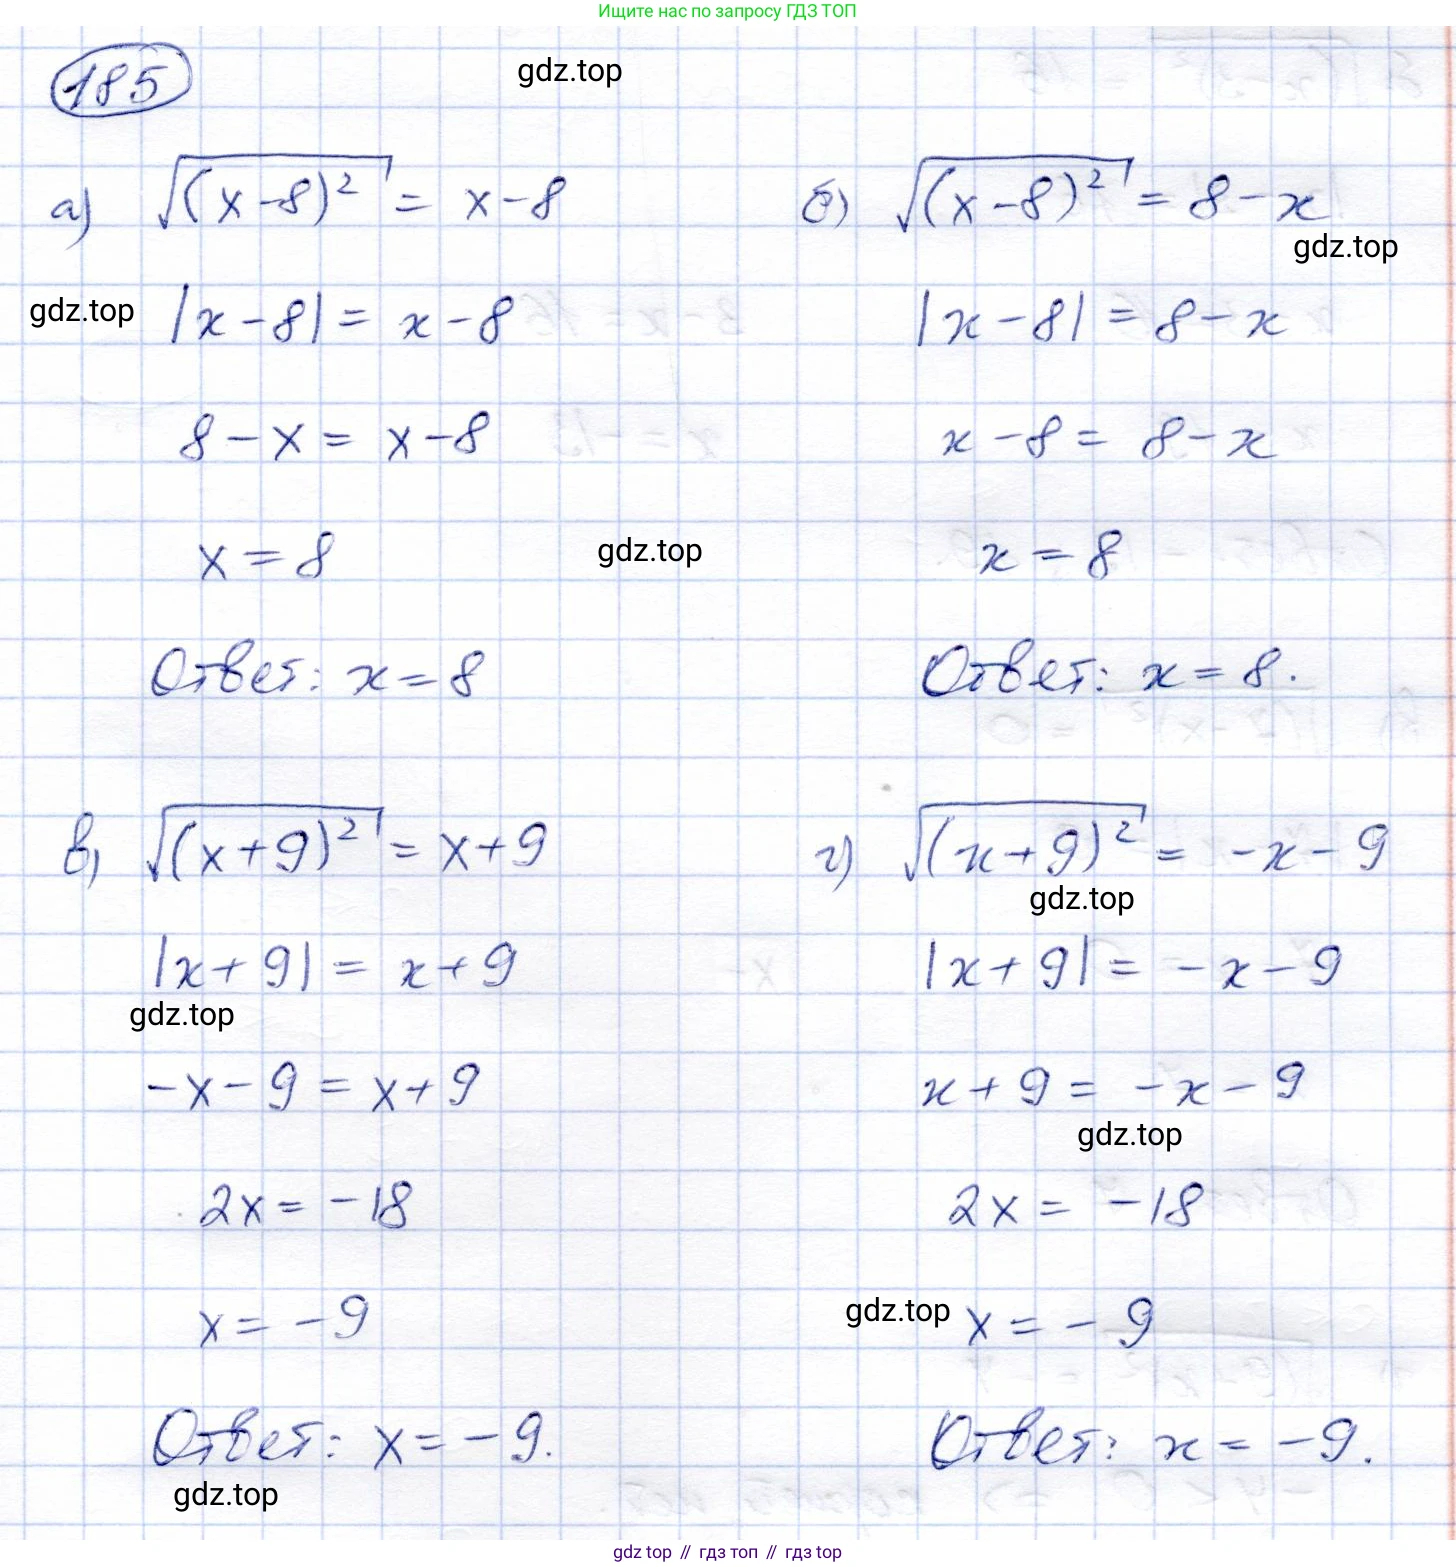 Ищите нас по запросу ГДЗ ТОП
185
gdz.top
а) √(x-8)² = x-8
б) √(x-8)² = 8-x
gdz.top
gdz.top
|x-8| = x-8
|x-8| = 8-x
8-x = x-8
x-8 = 8-x
x = 8
gdz.top
x = 8
Ответ: x=8
Ответ: x=8.
в) √(x+9)² = x+9
г) √(x+9)² = -x-9
gdz.top
|x+9| = x+9
|x+9| = -x-9
gdz.top
-x-9 = x+9
x+9 = -x-9
gdz.top
2x = -18
2x = -18
x = -9
gdz.top
x = -9
Ответ: x=-9.
Ответ: x=-9.
gdz.top
gdz top // гдз топ // гдз top